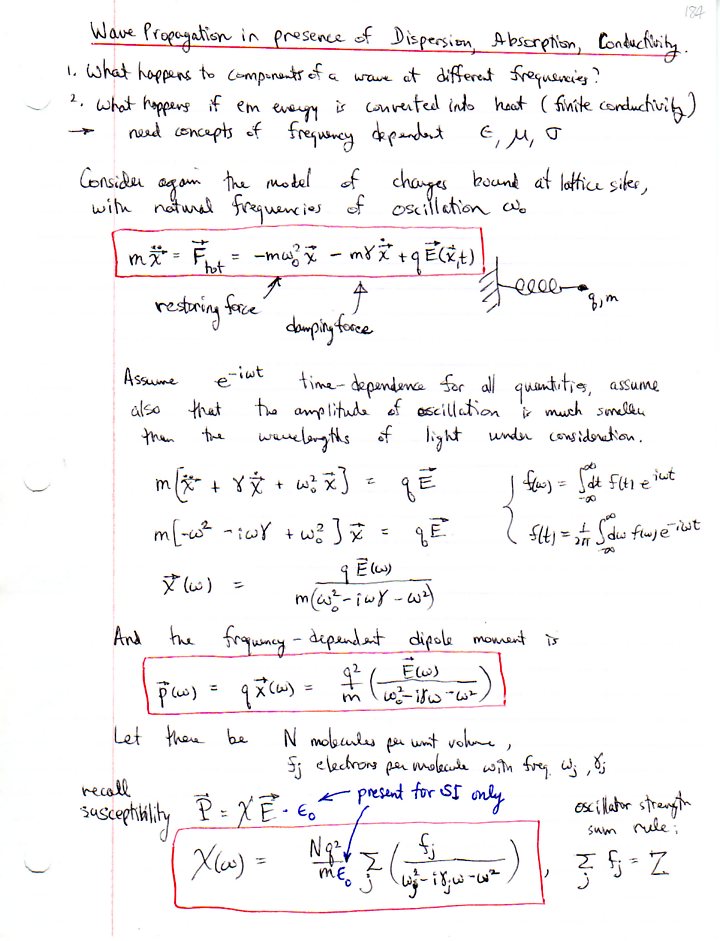 184
Wave Propagation in presence of Dispersion, Absorption, Conductivity.
1. What happens to components of a wave at different frequencies?
2. What happens if em energy is converted into heat (finite conductivity)
→ need concepts of frequency dependent ε, μ, σ
Consider again the model of charges bound at lattice sites,
with natural frequencies of oscillation ω₀
m ẍ⃗ = F⃗_tot = -mω₀² x⃗ - mγ ẋ⃗ + q E⃗(x⃗,t)
restoring force
damping force
q, m
Assume e^{-iωt} time-dependence for all quantities, assume
also that the amplitude of oscillation is much smaller
than the wavelengths of light under consideration.
m[ẍ⃗ + γ ẋ⃗ + ω₀² x⃗] = q E⃗
f(ω) = ∫_{-∞}^{∞} dt f(t) e^{iωt}
m[-ω² - iωγ + ω₀²] x⃗ = q E⃗
f(t) = 1/2π ∫_{-∞}^{∞} dω f(ω) e^{-iωt}
x⃗(ω) = q E⃗(ω) / m(ω₀² - iωγ - ω²)
And the frequency-dependent dipole moment is
p⃗(ω) = q x⃗(ω) = q²/m ( E⃗(ω) / ω₀² - iγω - ω² )
Let there be N molecules per unit volume,
f_j electrons per molecule with freq. ω_j, γ_j
recall
susceptibility P⃗ = χ E⃗ · ε₀ ← present for SI only
oscillator strength
sum rule:
χ(ω) = Nq²/mε₀ Σ_j ( f_j / ω_j² - iγ_jω - ω² ) , Σ_j f_j = Z